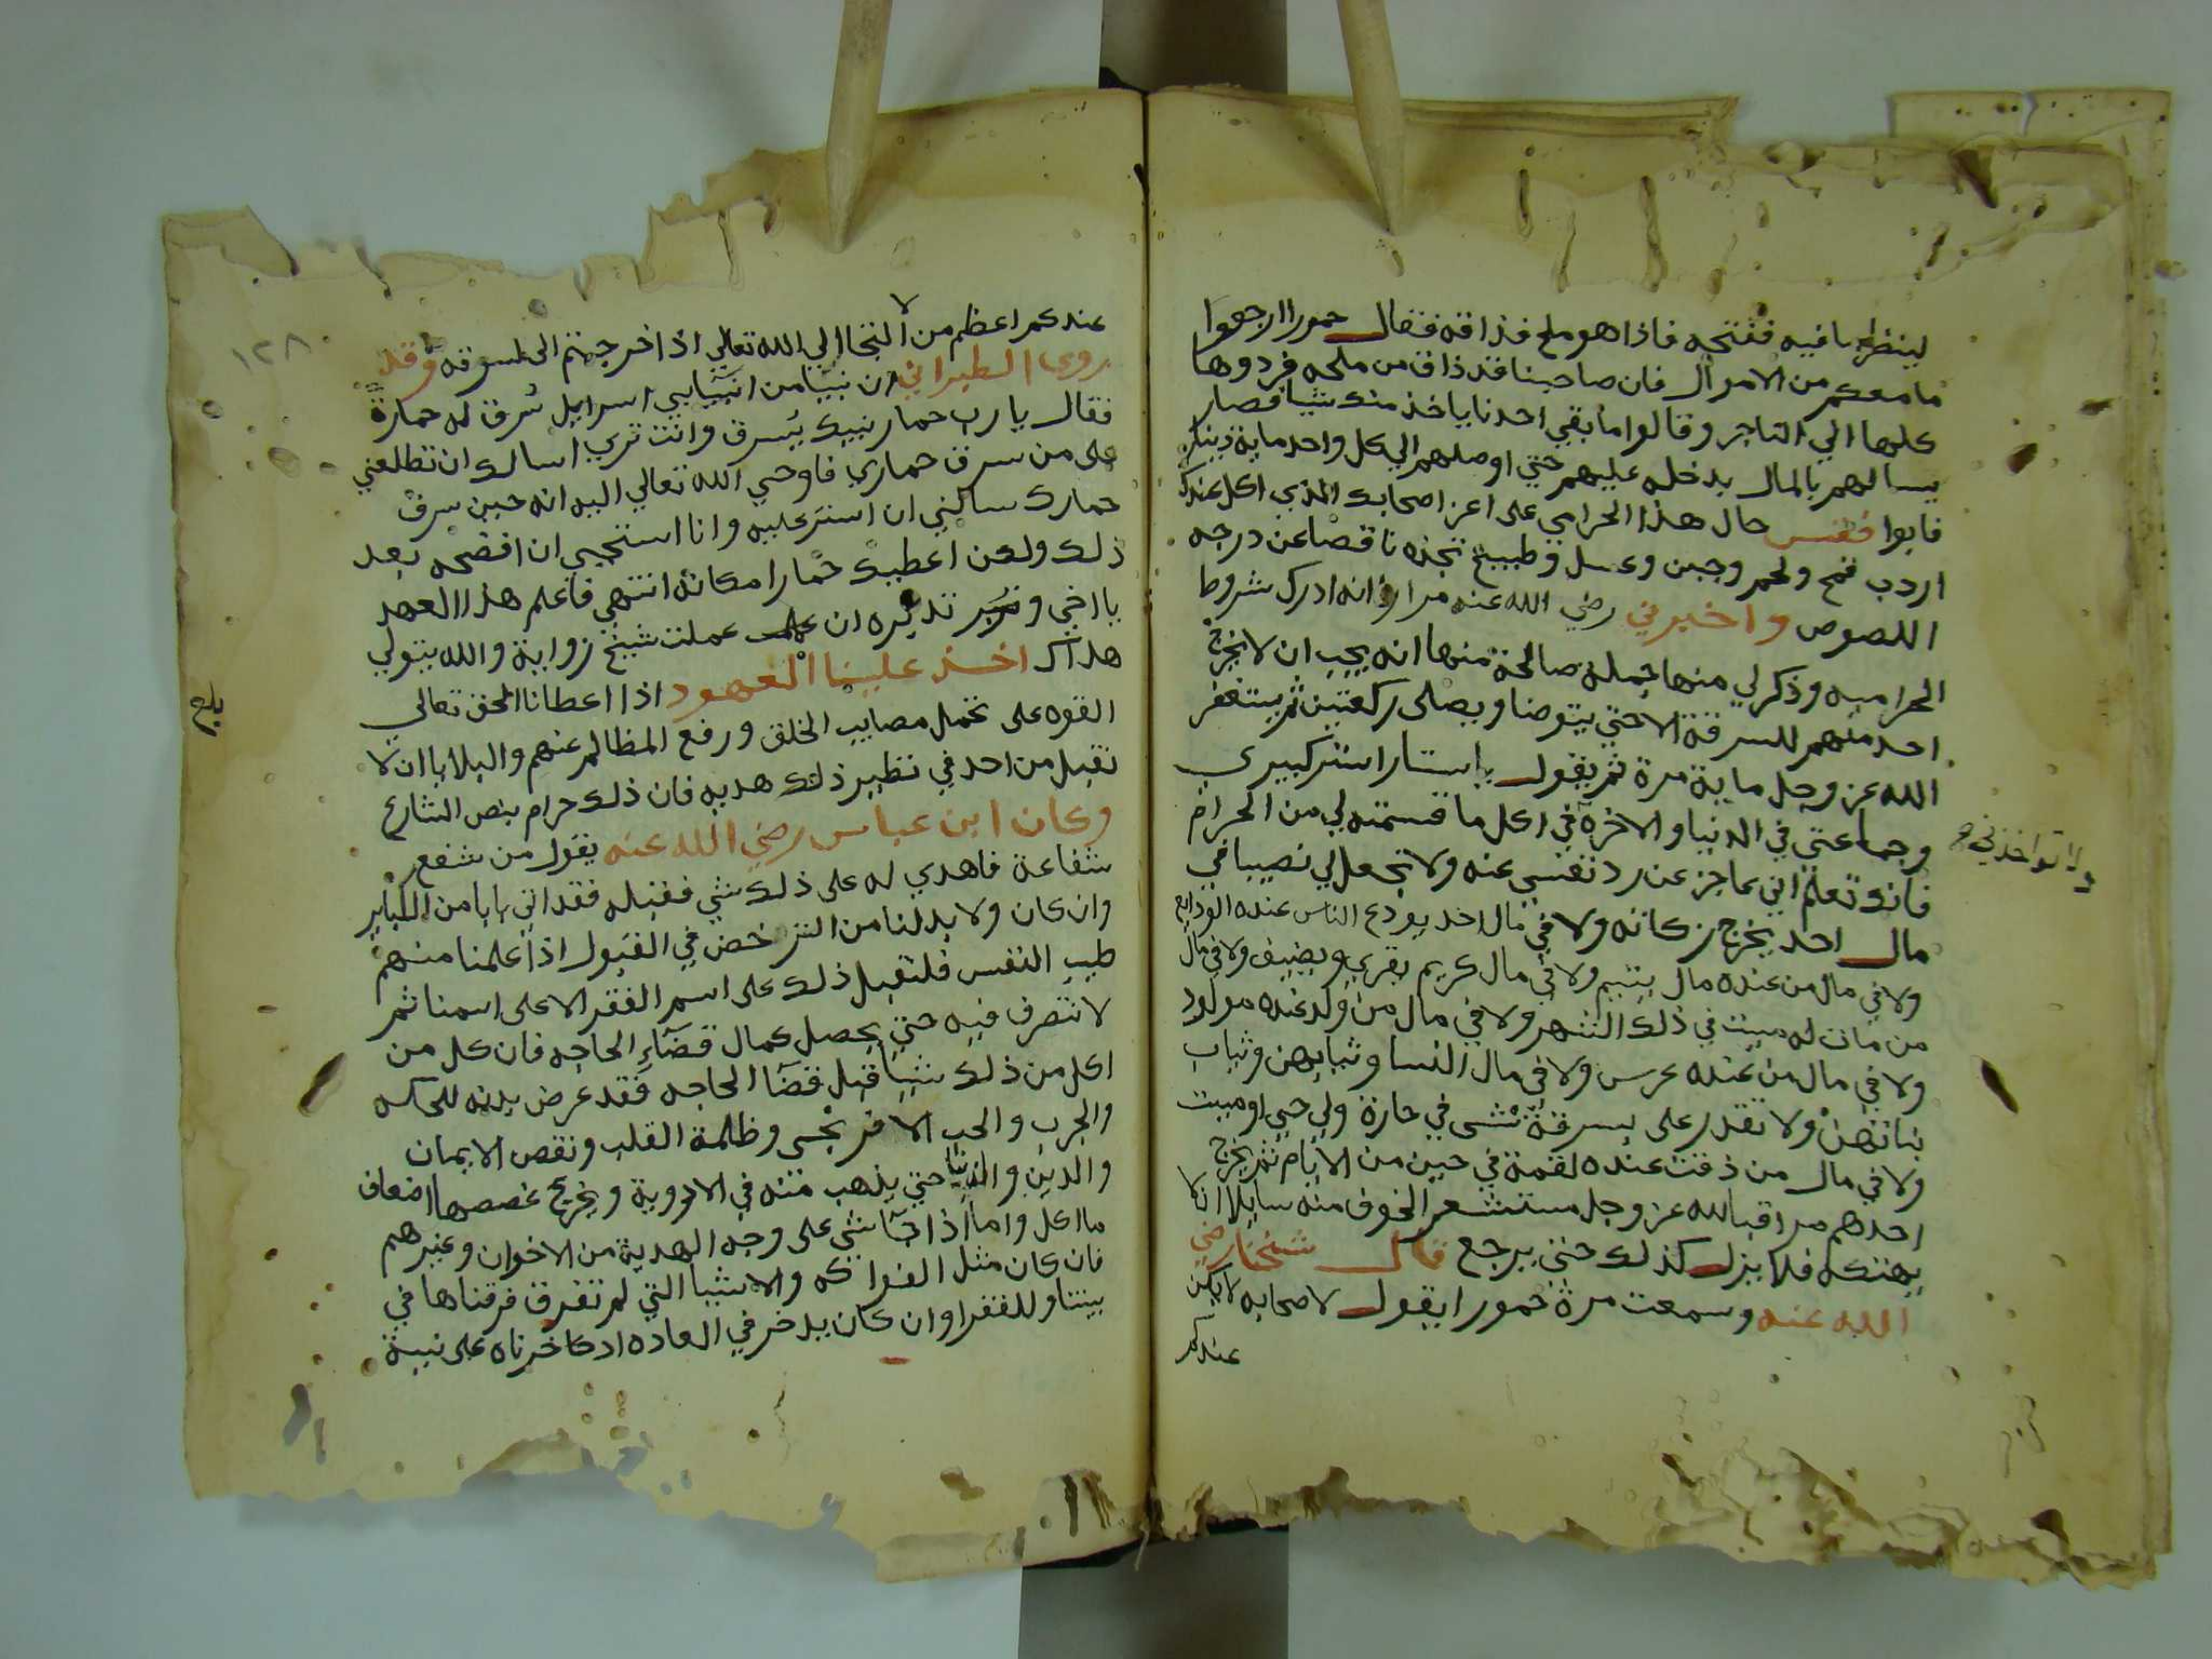 لينظر ما فيه ففتحه فاذا هو ملح فذاقه فقال حمورا ارجعوا
ما معكم من الاموال فان صاحبنا قد ذاق من ملحه فردوها
كلها الي التاجر وقالوا ما بقي احدنا ياخذ منك شيا فصار
يسالهم بالمال يدخله عليهم حتي اوصلهم الي كل واحد ماية دينار
فابوا فقس حال هذا الحرامي على اعز اصحابك الذي اكل عندك
اردب قمح ولحم وجبن وعسل وطبيخ تجده ناقصا عن درجه
اللصوص واخبرني رضي الله عنه مرارا انه ادرك شروط
الحراميه وذكر لي منها جملة صالحة منها انه يجب ان لا يخرج
احد منهم للسرقة الا حتي يتوضا ويصلى ركعتين ثم يستغفر
الله عز وجل ماية مرة ثم يقول يا ستار استر كبيري
وجماعتي في الدنيا والاخرة في اكل ما قسمته لي من الحرام
ولا تواخذني
فانك تعلم اني عاجز عن رد نفسي عنه ولا تجعل لي نصيبا في
مال احد يخرج زكاته ولا في مال احد يودع الناس عنده الودايع
ولا في مال من عنده مال يتيم ولا في مال كريم يقري ويضيف ولا في مال
من مات له ميت في ذلك الشهر ولا في مال من ولد عنده مولود
ولا في مال من عنده عرس ولا في مال النسا وثيابهن وثياب
بناتهن ولا تقدر على بسرقة شى في حارة ولي حي او ميت
ولا في مال من ذقت عنده لقمة في حين من الايام ثم يخرج
احدهم مراقبا لله عز وجل مستشعر الخوف منه سايلا ان لا
يهتكه فلا يزل كذلك حتي يرجع قال شيخنا رضي
الله عنه وسمعت مرة حمورا يقول لاصحابه لا يكن
عندكم
١٢٨
عندكم اعظم من الالتجا الي الله تعالي اذا خرجتم الى السرقه وقد
روى الطبراني ان نبيا من انبيا بني اسرايل سُرق له حمارة
فقال يا رب حمار نبيك يُسرق وانت تري اسالك ان تطلعني
على من سرق حماري فاوحي الله تعالي اليه انه حين سرق
حمارك سالني ان استر عليه وانا استحيي ان افضحه بعد
ذلك ولكن اعطيك حمارا مكانه انتهي فاعلم هذا العهد
يا اخي وتدبره ان عملت شيخ زواية والله يتولي
هداك اخذ علينا العهود اذا اعطانا الحق تعالي
القوه على تحمل مصايب الخلق ورفع المظالم عنهم والبلايا ان لا
نقبل من احد في نظير ذلك هديه فان ذلك حرام بنص الشارع
وكان ابن عباس رضي الله عنه يقول من شفع
شفاعة فاهدي له على ذلك شي فقبله فقد اتي بابا من الكباير
وان كان ولا بد لنا من الترخص في القبول اذا علمنا منهم
طيب النفس فلنقبل ذلك على اسم الفقرا لا على اسمنا ثم
لا نتصرف فيه حتي يحصل كمال قضاء الحاجه فان كل من
اكل من ذلك شيا قبل قضا الحاجه فقد عرض بدنه للحكه
والجرب والحب الافرنجى وظلمة القلب ونقص الايمان
والدين والدنيا حتي يذهب منه في الادوية ويخرج غصصها اضعاف
ما اكل واما اذا جآنا شي على وجه الهدية من الاخوان وغيرهم
فان كان مثل الفواكه والاشيا التي لم تفرق فرقناها في
بيتنا وللفقرا وان كان يدخر في العاده ادخرناه على نية